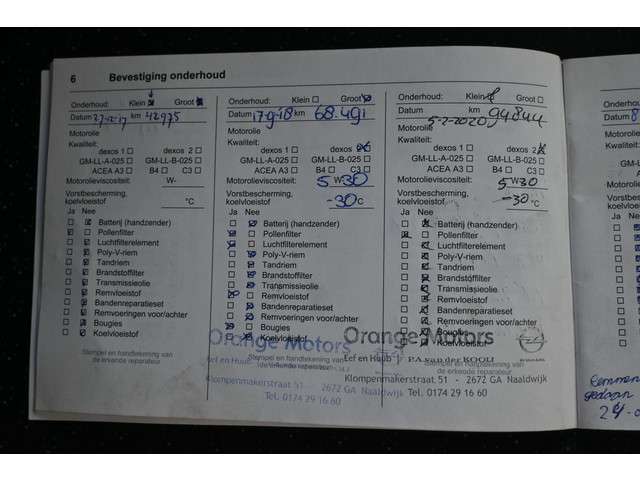 6 Bevestiging onderhoud
Onderhoud: Klein Groot
Datum km 42975
Motorolie
Kwaliteit:
dexos 1 dexos 2
GM-LL-A-025 GM-LL-B-025
ACEA A3 B4 C3
Motorolieviscositeit: W-
Vorstbescherming,
koelvloeistof °C
Ja Nee
Batterij (handzender)
Pollenfilter
Luchtfilterelement
Poly-V-riem
Tandriem
Brandstoffilter
Transmissieolie
Remvloeistof
Bandenreparatieset
Remvoeringen voor/achter
Bougies
Koelvloeistof
Stempel en handtekening van
de erkende reparateur
Onderhoud: Klein Groot
Datum 17-9-18 km 68.491
Motorolie
Kwaliteit:
dexos 1 dexos 2
GM-LL-A-025 GM-LL-B-025
ACEA A3 B4 C3
Motorolieviscositeit: 5 W 30
Vorstbescherming,
koelvloeistof -30 °C
Ja Nee
Batterij (handzender)
Pollenfilter
Luchtfilterelement
Poly-V-riem
Tandriem
Brandstoffilter
Transmissieolie
Remvloeistof
Bandenreparatieset
Remvoeringen voor/achter
Bougies
Koelvloeistof
Orange Motors
Stempel en handtekening van
de erkende reparateur
Klompenmakerstraat 51 - 2672 GA Naaldwijk
Tel. 0174 29 16 60
Onderhoud: Klein Groot
Datum km
5-2-2020 94844
Motorolie
Kwaliteit:
dexos 1 dexos 2
GM-LL-A-025 GM-LL-B-025
ACEA A3 B4 C3
Motorolieviscositeit: 5 W 30
Vorstbescherming,
koelvloeistof -30 °C
Ja Nee
Batterij (handzender)
Pollenfilter
Luchtfilterelement
Poly-V-riem
Tandriem
Brandstoffilter
Transmissieolie
Remvloeistof
Bandenreparatieset
Remvoeringen voor/achter
Bougies
Koelvloeistof
Orange Motors
Lef en Huub
Stempel en handtekening van
de erkende reparateur
Klompenmakerstraat 51 - 2672 GA Naaldwijk
Tel. 0174 29 16 60
On
Datum 8
Mo
Kw
gedaan